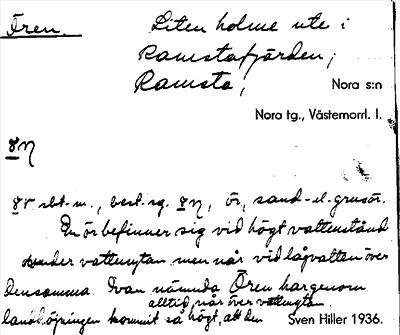 Ören.
Liten holme ute i
Ramstafjärden,
Ramsta,
Nora s:n
Nora tg., Västernorrl. l.
sbt. m., best. sg., ör, sand- el. grusör.
En ör befinner sig vid högt vattenstånd
under vattenytan men når vid lågvatten över
densamma. Ovan nämnda Ören har genom
landhöjningen kommit så högt, att den
alltid når över vattenytan.
Sven Hiller 1936.